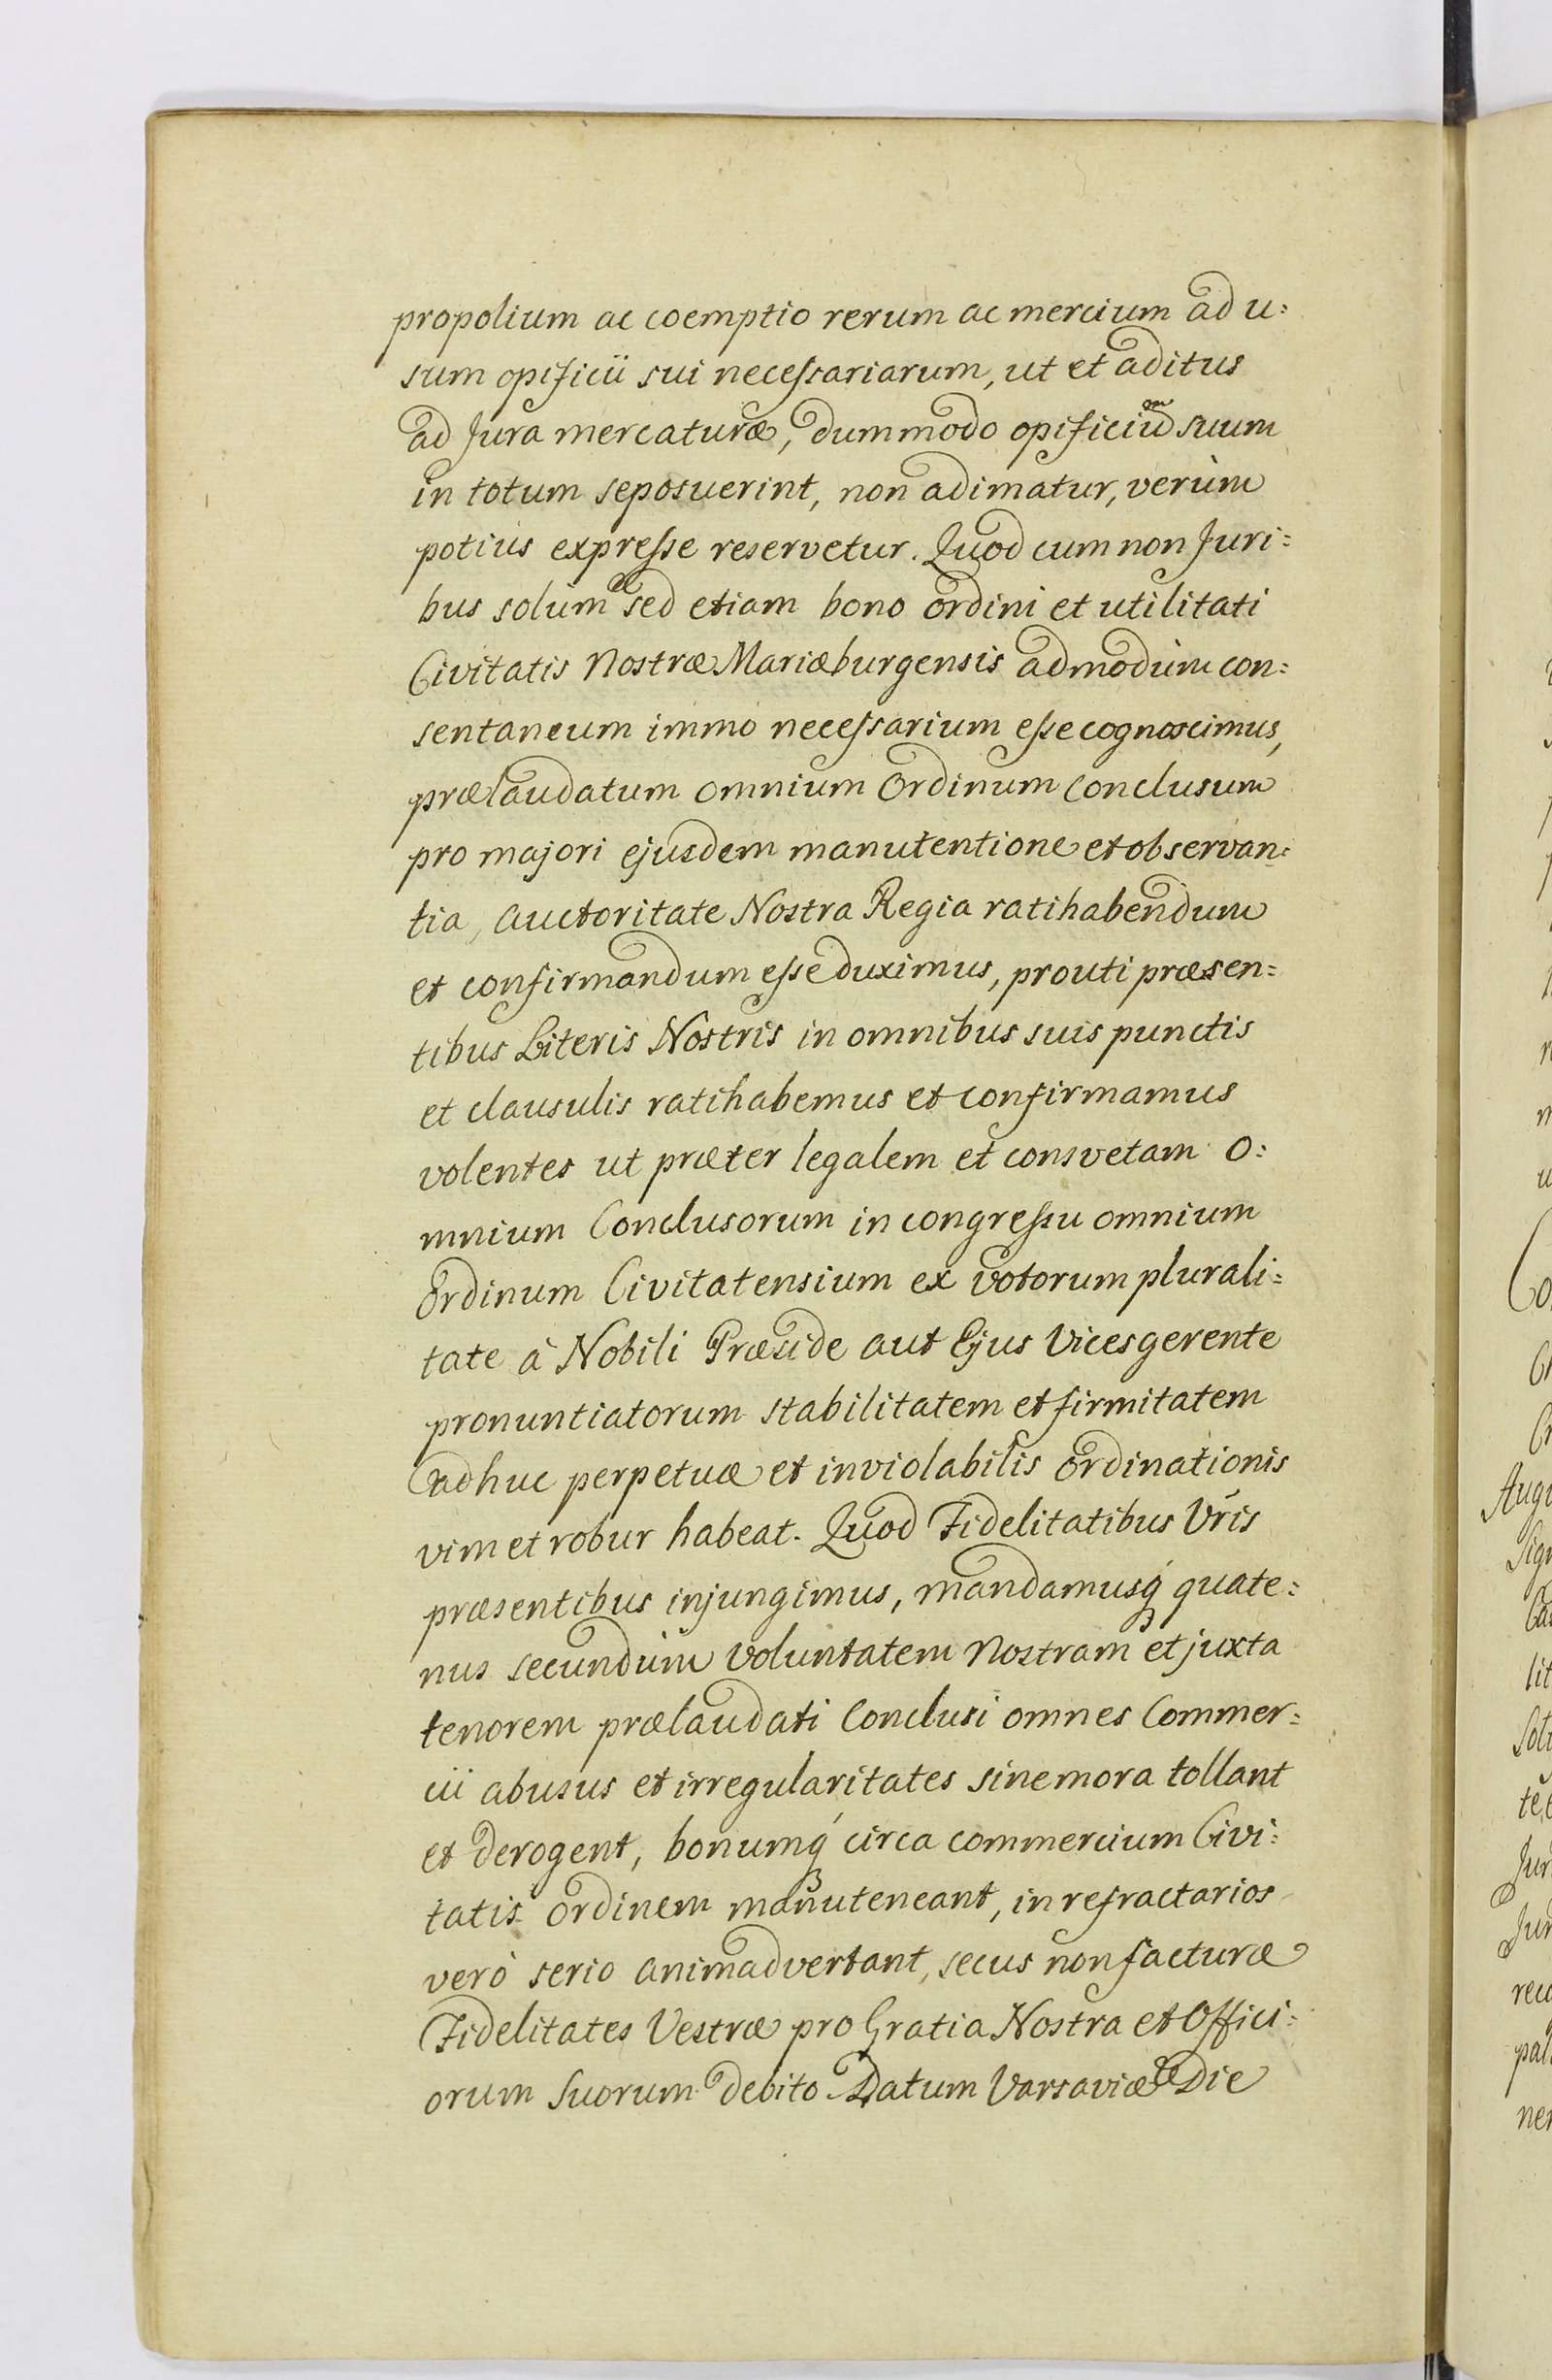 propolium ac coemptio rerum ac mercium ad u:
sum opificii sui necessariarum, ut et aditus
ad Jura mercaturæ, dummodo opificium suum
in totum seposuerint, non adimatur, verùm
potiùs expresse reservetur. Quod cum non Juri:
bus solum sed etiam bono ordini et utilitati
Civitatis Nostræ Mariæburgensis admodùm con:
sentaneum immò necessarium esse cognoscimus,
prælaudatum omnium Ordinum Conclusum
pro majori ejusdem manutentione et observan:
tia, Auctoritate Nostra Regia ratihabendum
et confirmandum esse duximus, prouti præsen:
tibus Literis Nostris in omnibus suis punctis
et clausulis ratihabemus et confirmamus
volentes ut præter legalem et consvetam o:
mnium Conclusorum in congressu omnium
Ordinum Civitatensium ex votorum plurali:
tate à Nobili Præside aut Ejus Vicesgerente
pronuntiatorum stabilitatem et firmitatem
adhuc perpetuæ et inviolabilis ordinationis
vim et robur habeat. Quod Fidelitatibus Vris
præsentibus injungimus, mandamusq́ quate:
nus secundùm voluntatem Nostram et juxta
tenorem prælaudati Conclusi omnes Commer:
cii abusus et irregularitates sine mora tollant
et derogent, bonumq́ circa commercium Civi:
tatis ordinem manuteneant, in refractarios
verò serio animadvertant, secus non facturæ
Fidelitates Vestræ pro Gratia Nostra et Offici:
orum Suorum debito. Datum Varsaviæ Die